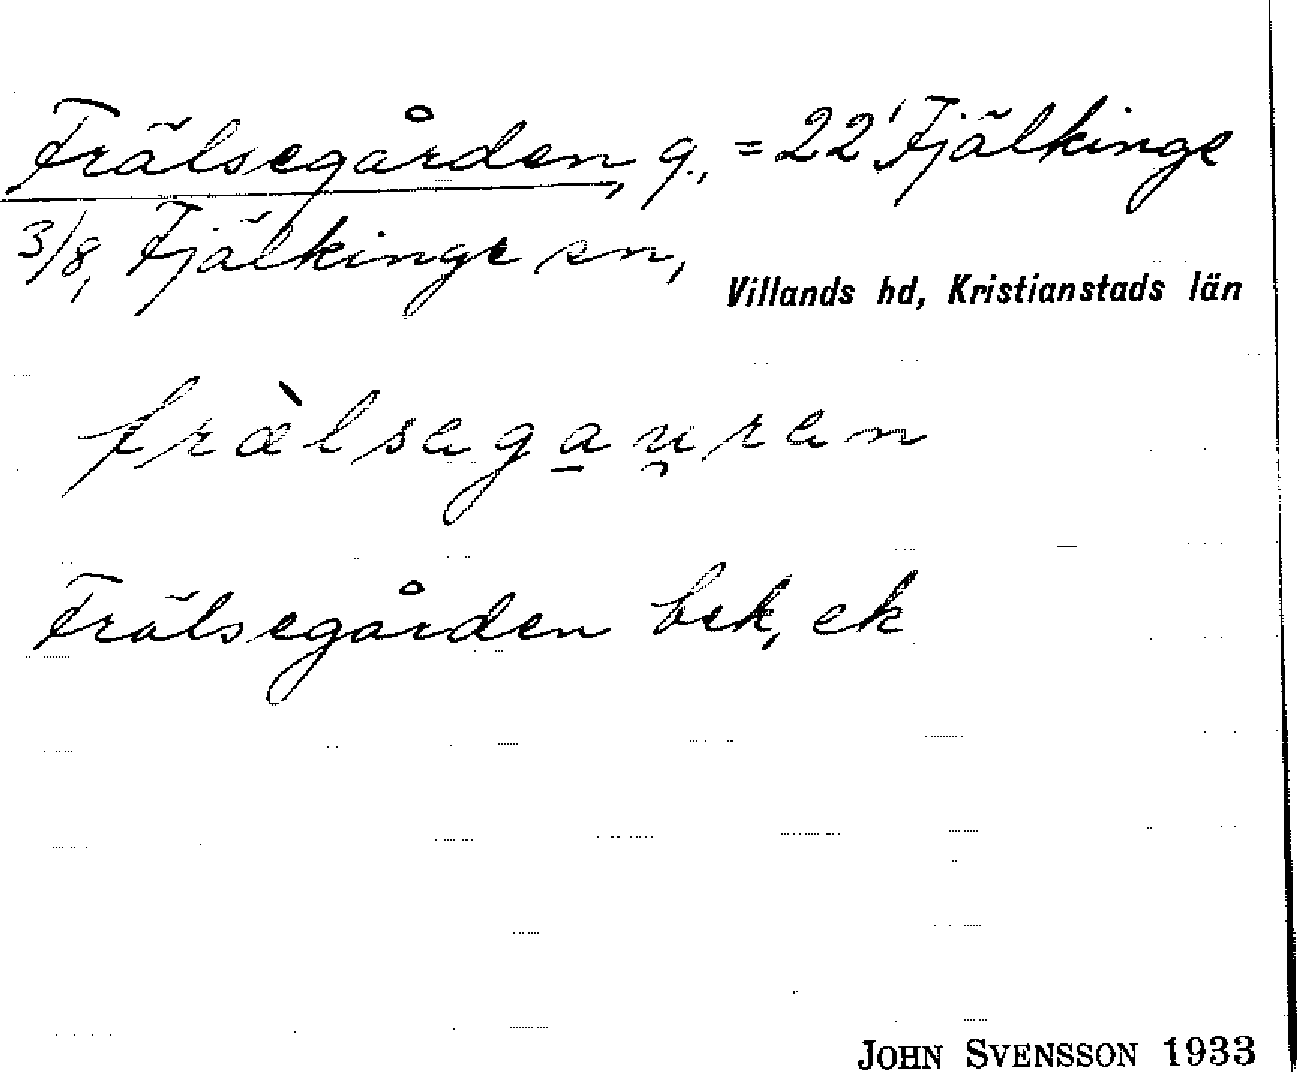 Frälsegården, g., = 22¹ Fjälkinge
3/8, Fjälkinge sn,
Villands hd, Kristianstads län
fræ̀lsegau̯ren
Frälsegården bek, ek
JOHN SVENSSON 1933